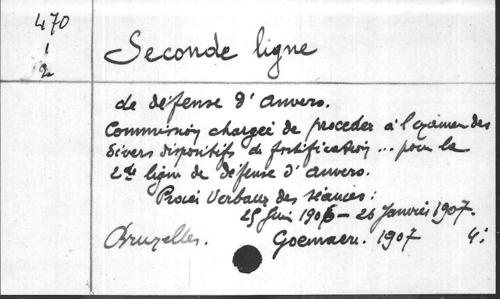 470
1
2
Seconde ligne
de défense d'Anvers.
Commission chargée de procéder à l'examen des
divers dispositifs de fortification... pour la
2de ligne de défense d'Anvers.
Procès Verbaux des séances:
25 Juin 1906 – 26 Janvier 1907.
Bruxelles. Goemaere. 1907 4: